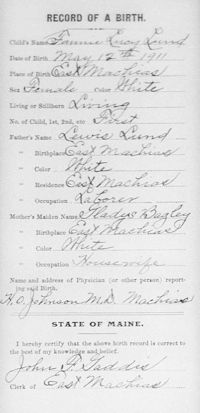 RECORD OF A BIRTH.
Child's Name Fannie Lucy Lund
Date of Birth May 12th 1911
Place of Birth East Machias
Sex Female Color White
Living or Stillborn Living
No. of Child, 1st, 2nd, etc First
Father's Name Lewis Lund
" Birthplace East Machias
" Color White
" Residence East Machias
" Occupation Laborer
Mother's Maiden Name Gladys Bagley
" Birthplace East Machias
" Color White
" Occupation Housewife
Name and address of Physician (or other person) report-
ing said Birth.
H. O. Johnson M.D. Machias
STATE OF MAINE.
I hereby certify that the above birth record is correct to
the best of my knowledge and belief.
John F. Taddis
Clerk of East Machias